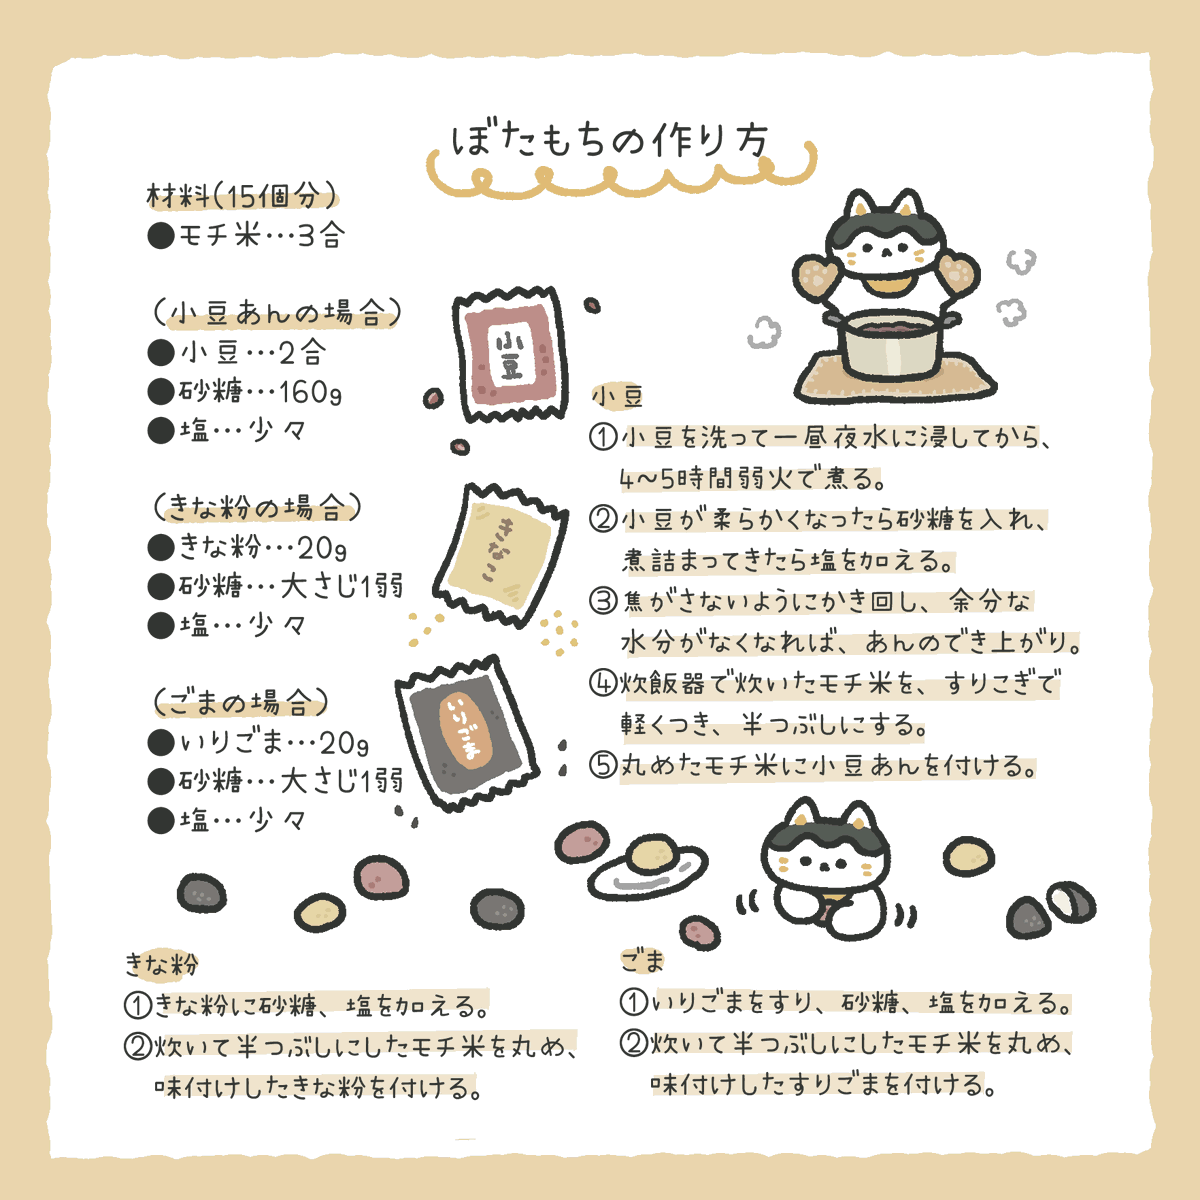 ぼたもちの作り方
材料(15個分)
●モチ米…3合
(小豆あんの場合)
●小豆…2合
●砂糖…160g
●塩…少々
(きな粉の場合)
●きな粉…20g
●砂糖…大さじ1弱
●塩…少々
(ごまの場合)
●いりごま…20g
●砂糖…大さじ1弱
●塩…少々
小豆
きなこ
いりごま
小豆
①小豆を洗って一昼夜水に浸してから、
4〜5時間弱火で煮る。
②小豆が柔らかくなったら砂糖を入れ、
煮詰まってきたら塩を加える。
③焦がさないようにかき回し、余分な
水分がなくなれば、あんのでき上がり。
④炊飯器で炊いたモチ米を、すりこぎで
軽くつき、半つぶしにする。
⑤丸めたモチ米に小豆あんを付ける。
きな粉
①きな粉に砂糖、塩を加える。
②炊いて半つぶしにしたモチ米を丸め、
味付けしたきな粉を付ける。
ごま
①いりごまをすり、砂糖、塩を加える。
②炊いて半つぶしにしたモチ米を丸め、
味付けしたすりごまを付ける。